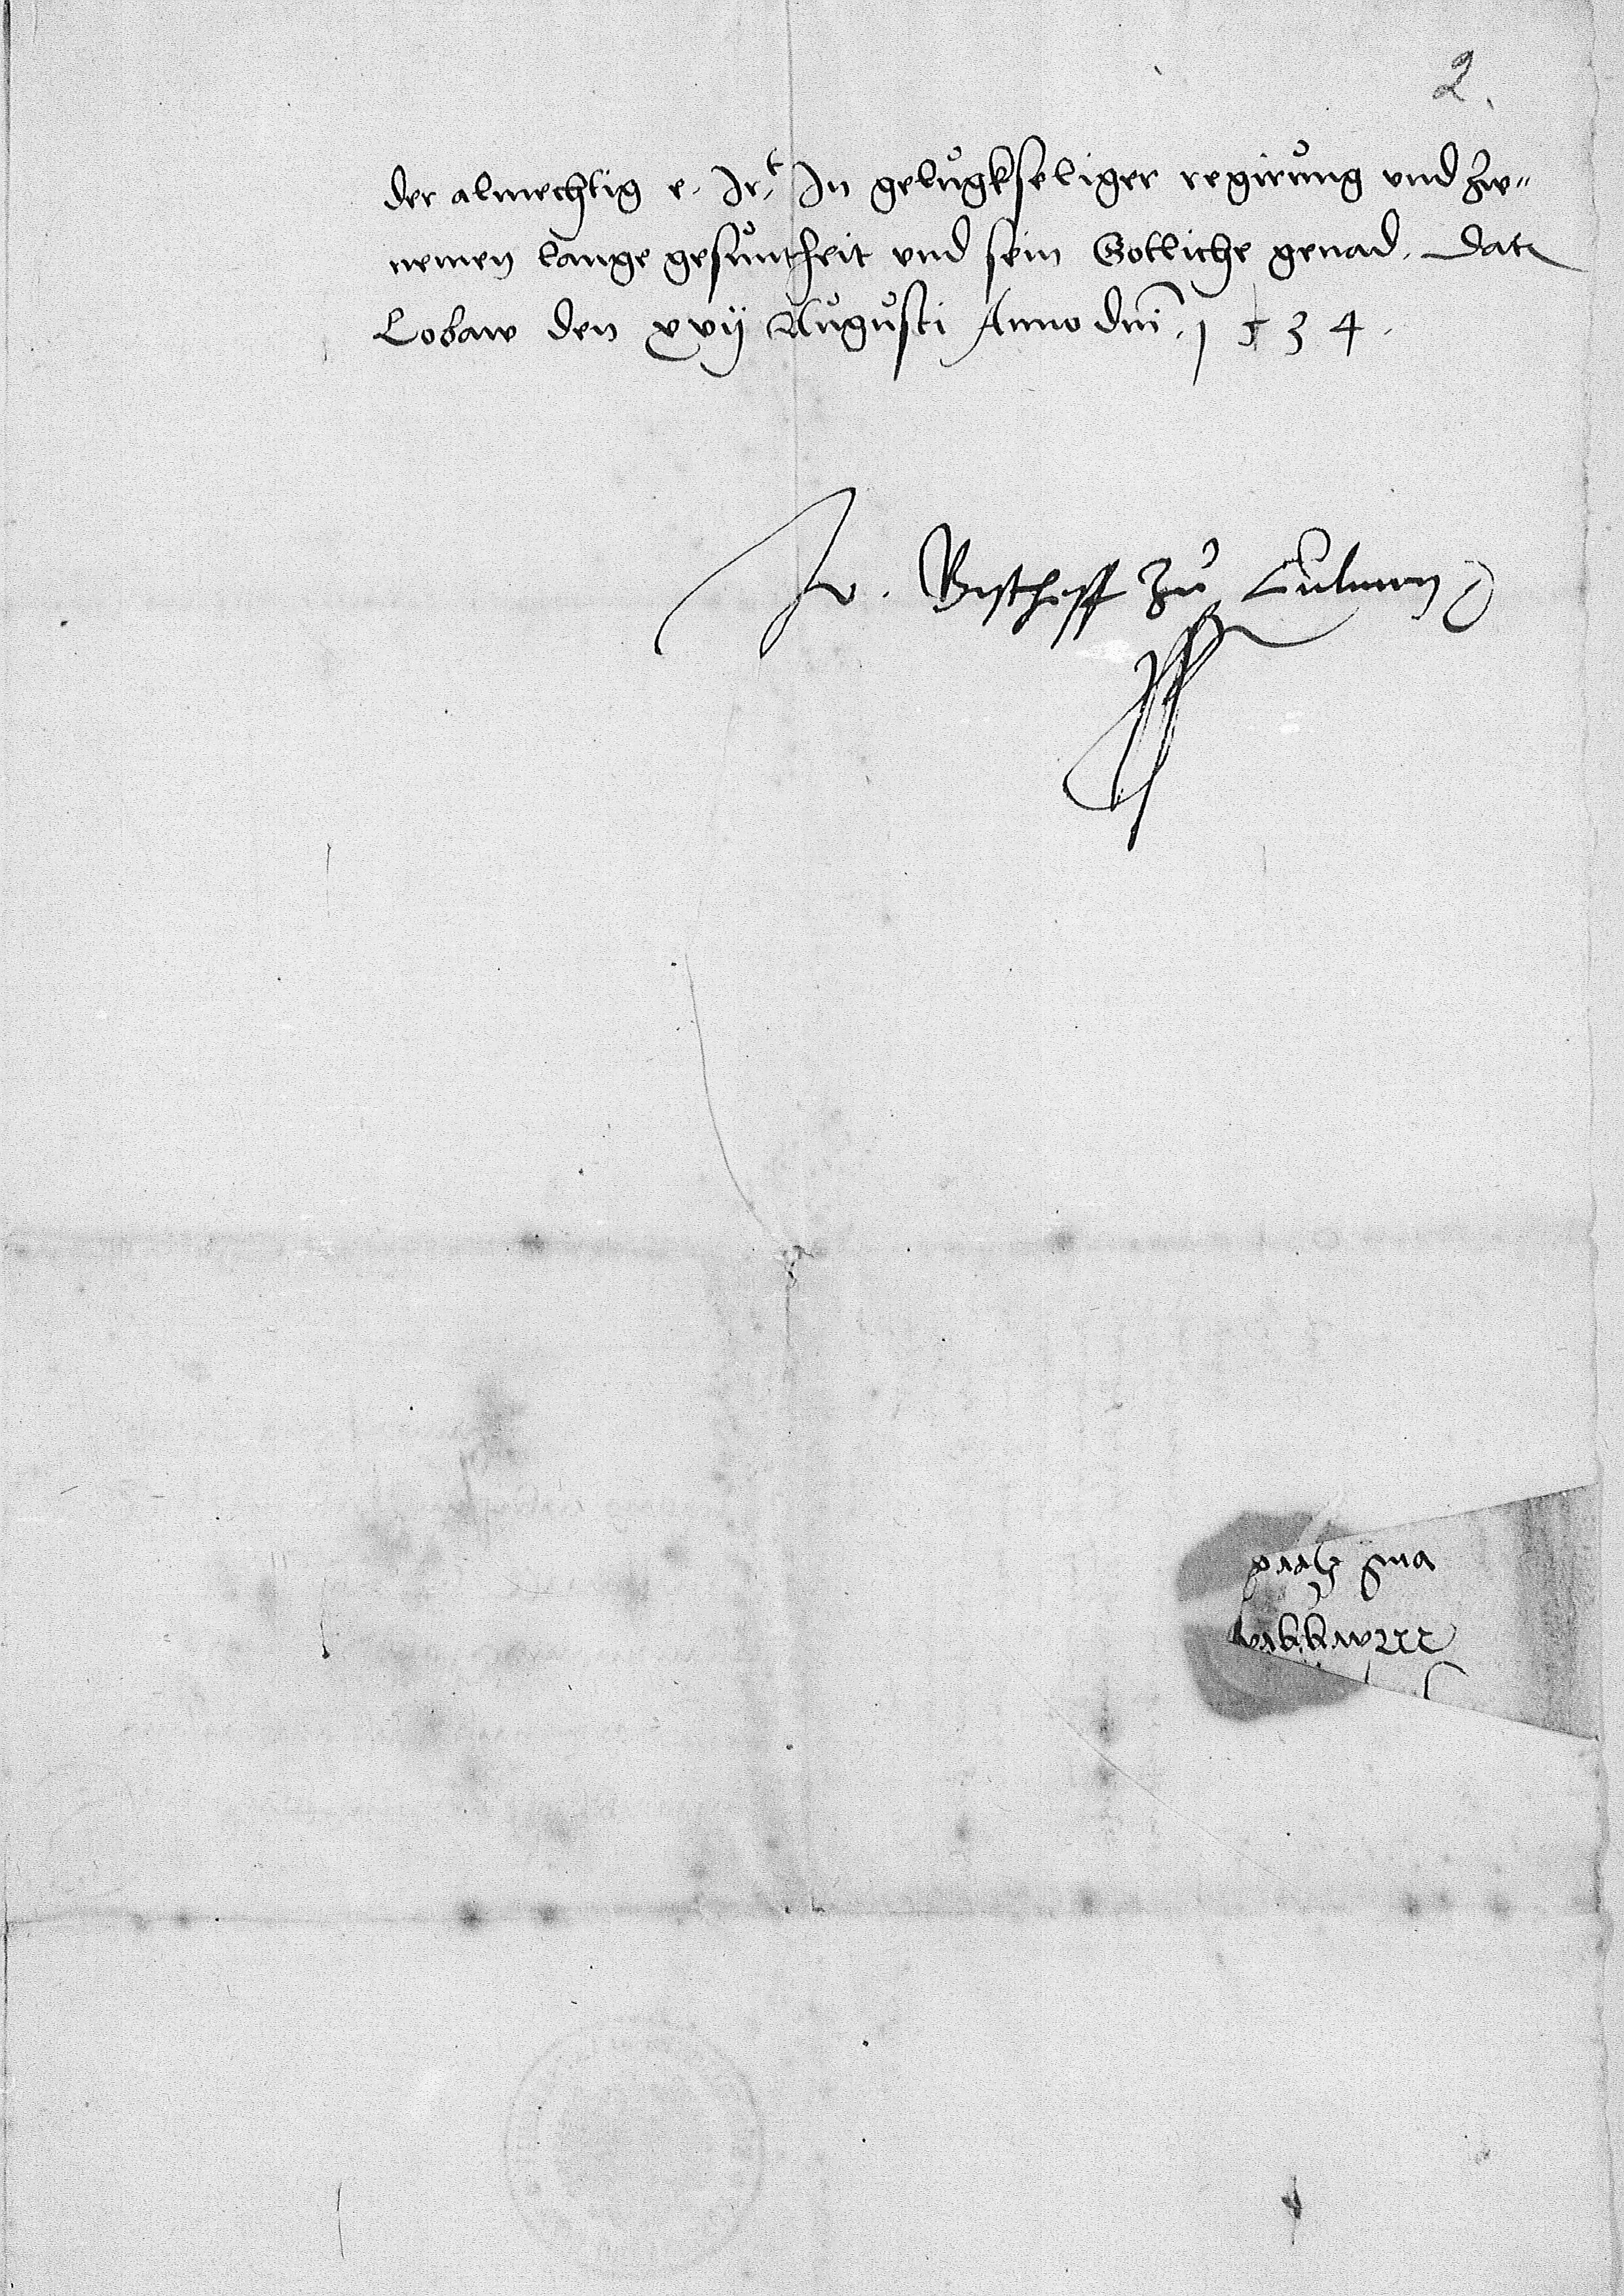 2.
der almechtig e. Irt. In gelůgkseliger regirůng und zw=
nemen lange gesůntheit und sein Gotliche genad. Dat
Lobaw den xvij Augůsti Anno dni. 1534.
Jo. Bischoff zů Culmen